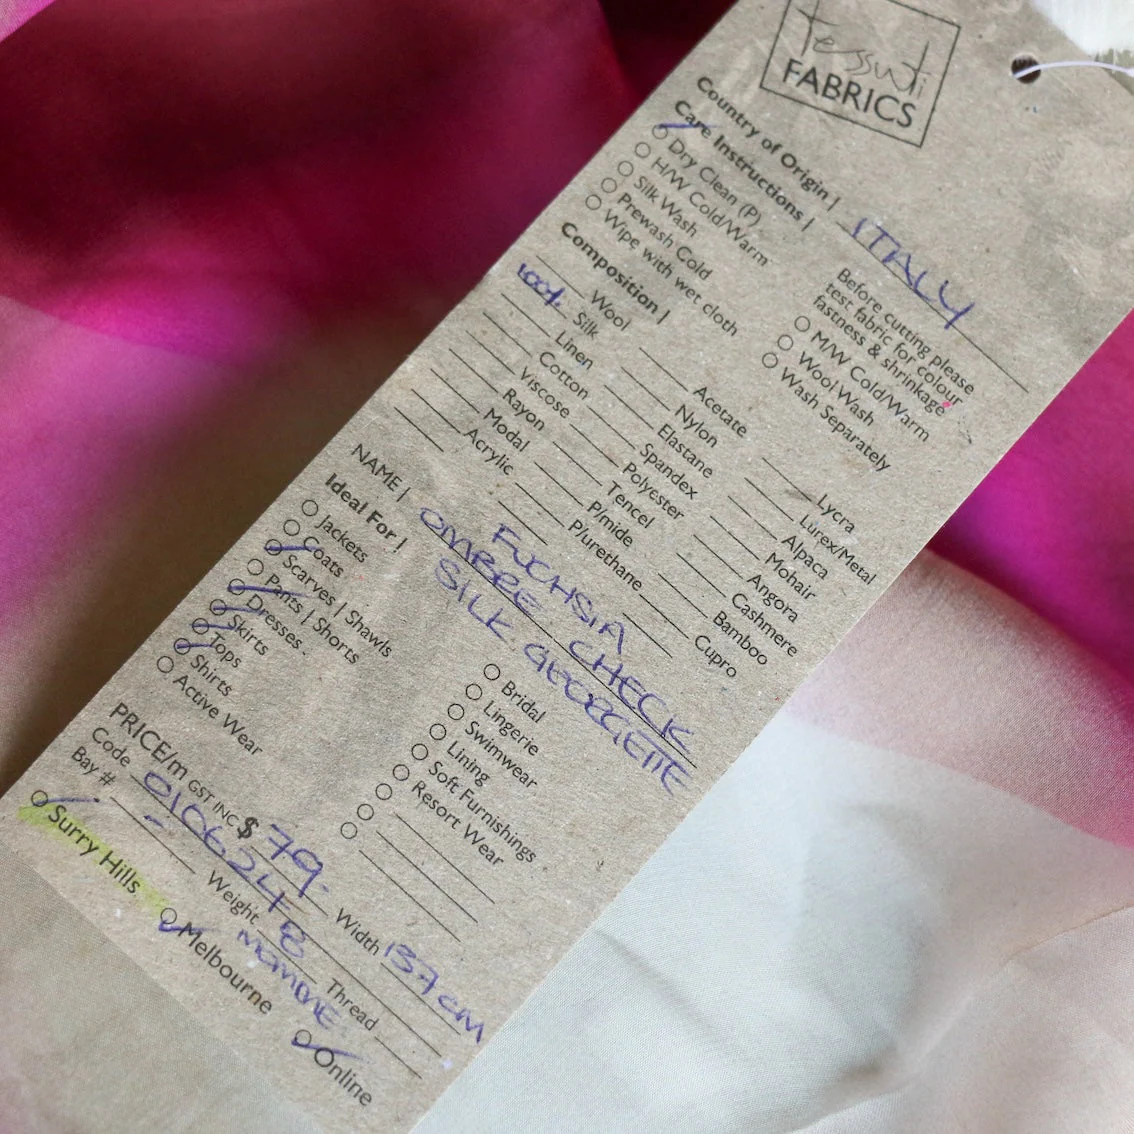 Tessuti
FABRICS
Country of Origin | ITALY
Care Instructions |
Dry Clean (P)
H/W Cold/Warm
Silk Wash
Prewash Cold
Wipe with wet cloth
Before cutting please
test fabric for colour
fastness & shrinkage
M/W Cold/Warm
Wool Wash
Wash Separately
Composition |
Wool
100% Silk
Linen
Cotton
Viscose
Rayon
Modal
Acrylic
Acetate
Nylon
Elastane
Spandex
Polyester
Tencel
P/mide
P/urethane
Lycra
Lurex/Metal
Alpaca
Mohair
Angora
Cashmere
Bamboo
Cupro
NAME | FUCHSIA
OMBRE CHECK
SILK GEORGETTE
Ideal For |
Jackets
Coats
Scarves | Shawls
Pants | Shorts
Dresses
Skirts
Tops
Shirts
Active Wear
Bridal
Lingerie
Swimwear
Lining
Soft Furnishings
Resort Wear
PRICE/m GST INC $ 79.
Width 137cm
Code 010624
Weight 8 MOMME
Bay # -
Thread
Surry Hills
Melbourne
Online